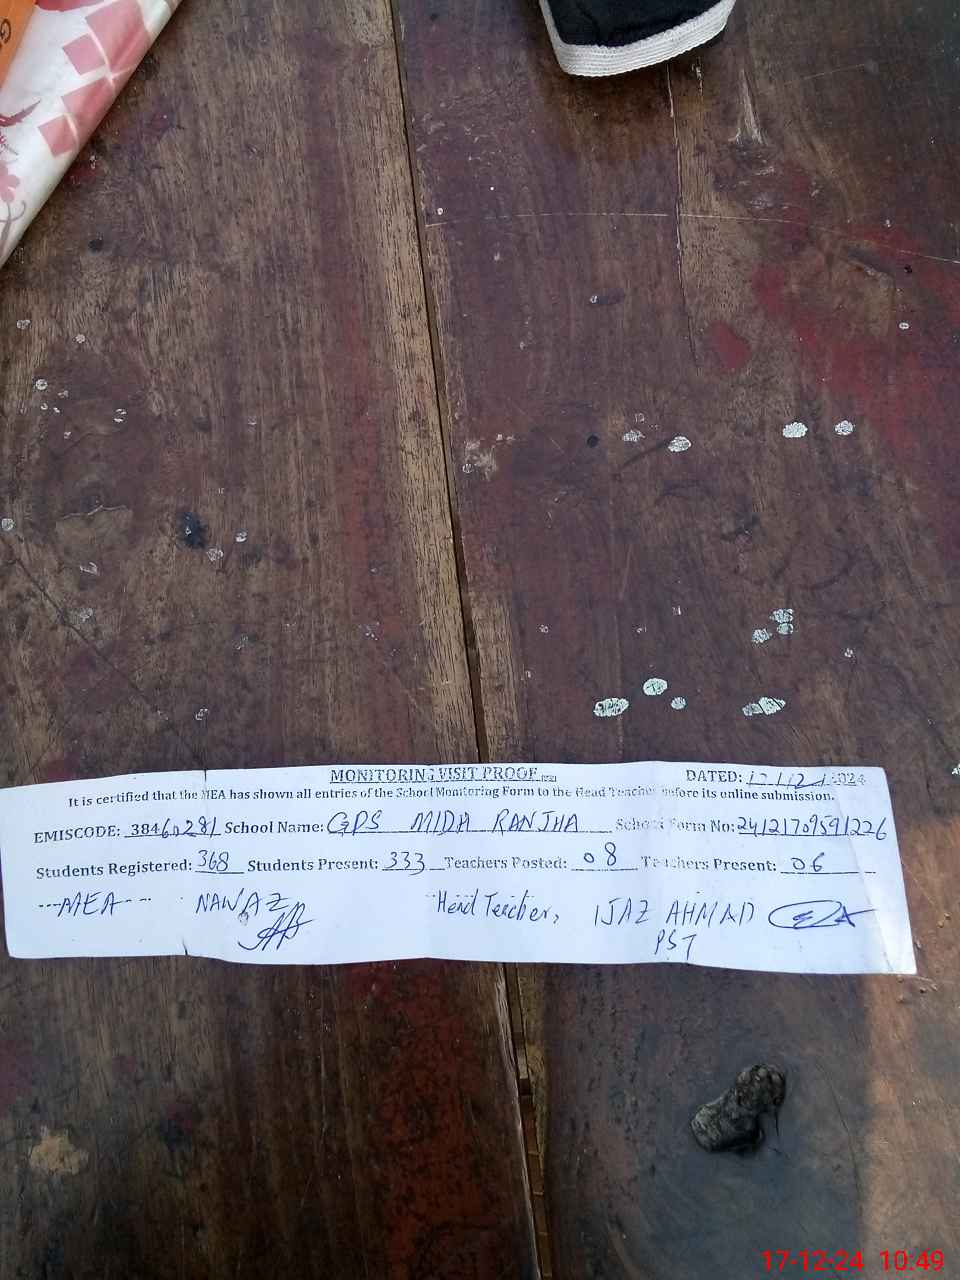 MONITORING VISIT PROOF
DATED: 17/12/2024
It is certified that the MEA has shown all entries of the School Monitoring Form to the Head Teacher before its online submission.
EMISCODE: 38460281 School Name: GPS MIDH RANJHA School Form No: 24121709591226
Students Registered: 368 Students Present: 333 Teachers Posted: 08 Teachers Present: 06
MEA NAWAZ Head Teacher, IJAZ AHMAD
PST
17-12-24 10:49